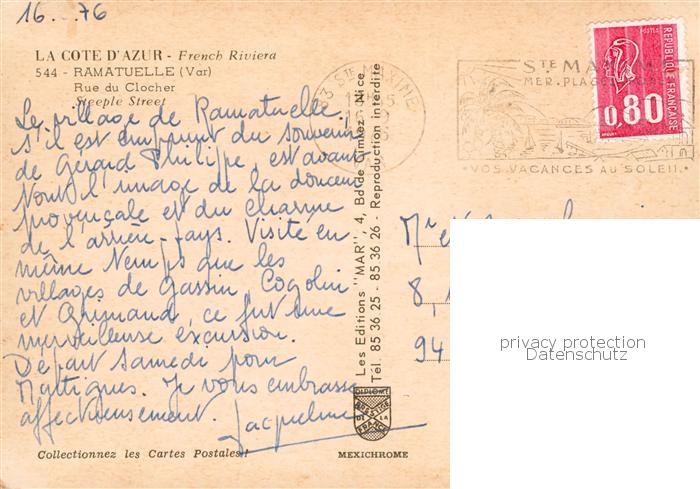 16 76
LA COTE D'AZUR - French Riviera
544 - RAMATUELLE (Var)
Rue du Clocher
Steeple Street
Le village de Ramatuelle,
s'il est empreint du souvenir
de Gérard Philippe, est avant
tout l'image de la douceur
provençale et du charme
de l'arrière-pays. Visité en
même temps que les
villages de Gassin, Cogolin
et Grimaud, ce fut une
merveilleuse excursion.
Départ samedi pour
Martigues. Je vous embrasse
affectueusement. Jacqueline
Collectionnez les Cartes Postales!
Les Editions "MAR", 4, Bd de Cimiez, Nice
Tél. 85 36 25 - 85 36 26 - Reproduction interdite
DIPLOME
PRESTIGE
DE LA
FRANCE
MEXICHROME
83 STE MAXIME
STE MAX
MER. PLAGE
VOS VACANCES AU SOLEIL
POSTES
0,80
REPUBLIQUE FRANÇAISE
8,
94
privacy protection
Datenschutz